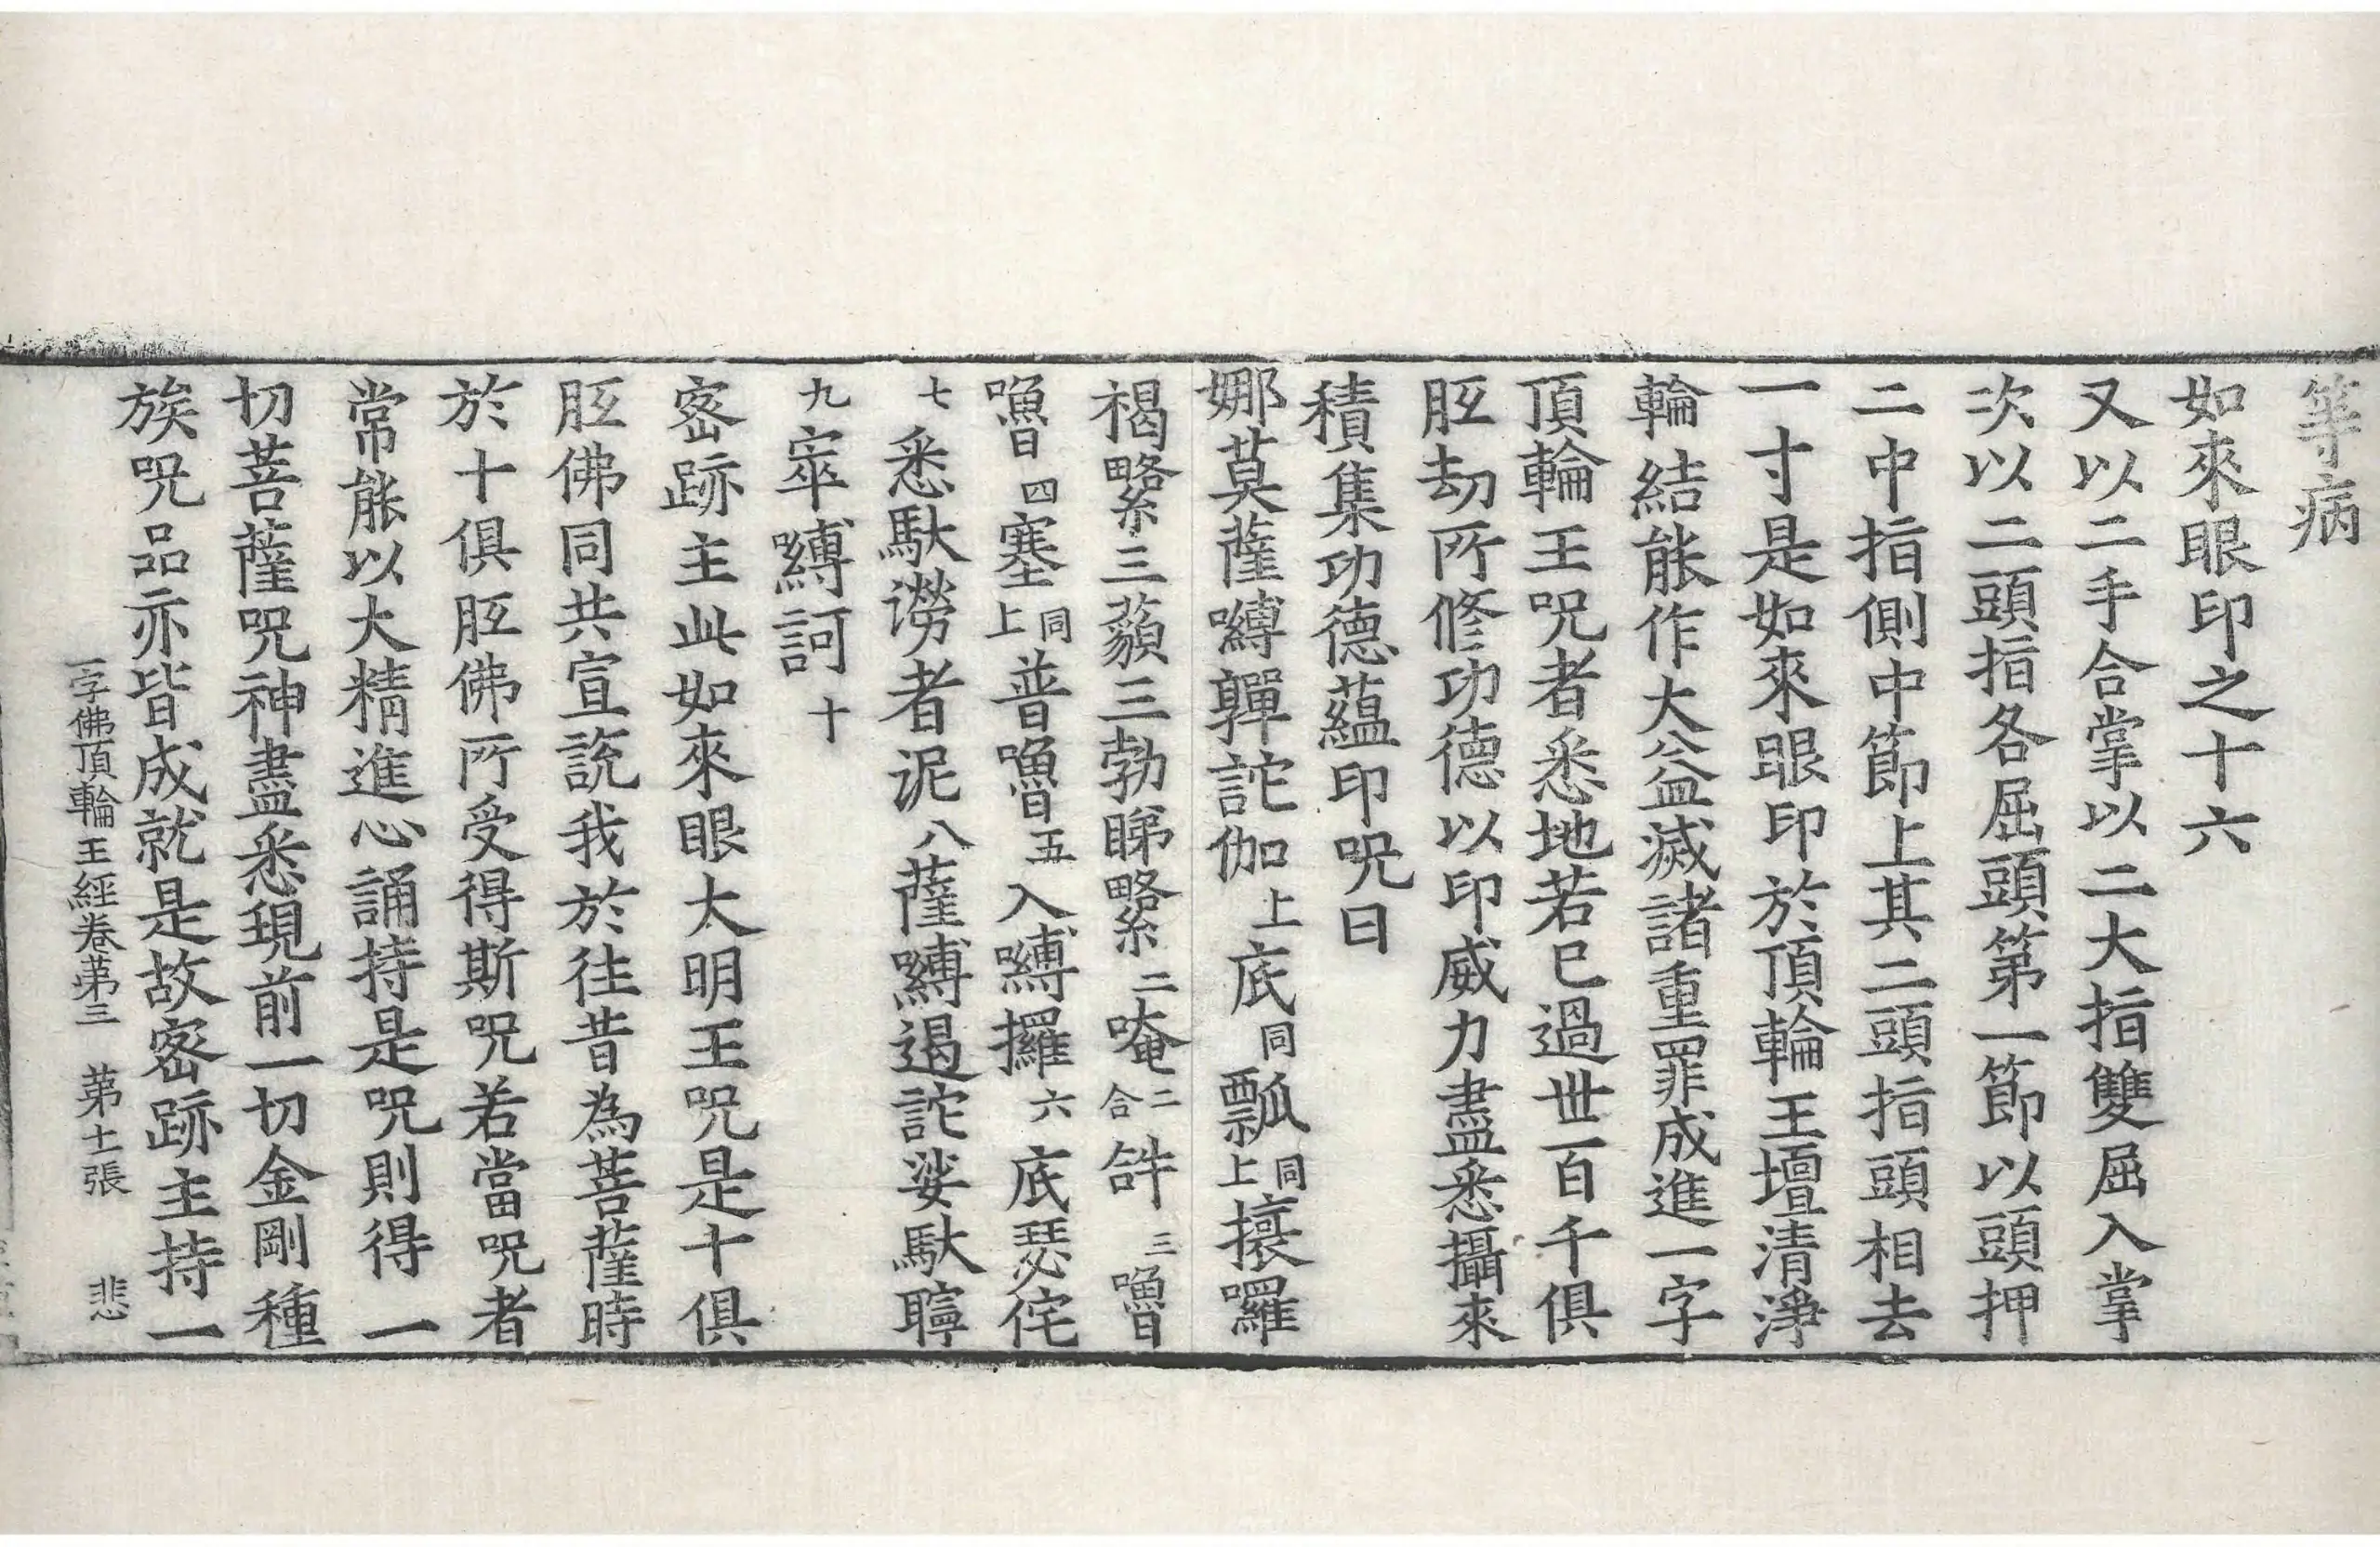 等病
如來眼印之十六
又以二手合掌以二大指雙屈入掌
次以二頭指各屈頭第一節以頭押
二中指側中節上其二頭指頭相去
一寸是如來眼印於頂輪王壇清淨
輪結能作大益滅諸重罪成進一字
頂輪王咒者悉地若已過世百千俱
胝劫所修功德以印威力盡悉攝來
積集功德蘊印咒曰
娜莫薩嚩嚲詑伽上底同瓢同上攘囉
褐略系三藐三勃睇略系二唵二合𤙖三嚕
嚕四塞同上普嚕五入嚩攞六底瑟侘
七悉馱澇者泥八薩嚩遏詑娑馱聹
九窣嚩訶十
密跡主此如來眼大明王咒是十俱
胝佛同共宣說我於往昔為菩薩時
於十俱胝佛所受得斯咒若當咒者
常能以大精進心誦持是咒則得一
切菩薩咒神盡悉現前一切金剛種
族咒品亦皆成就是故密跡主持一
一字佛頂輪王經卷第三　第十一張　悲